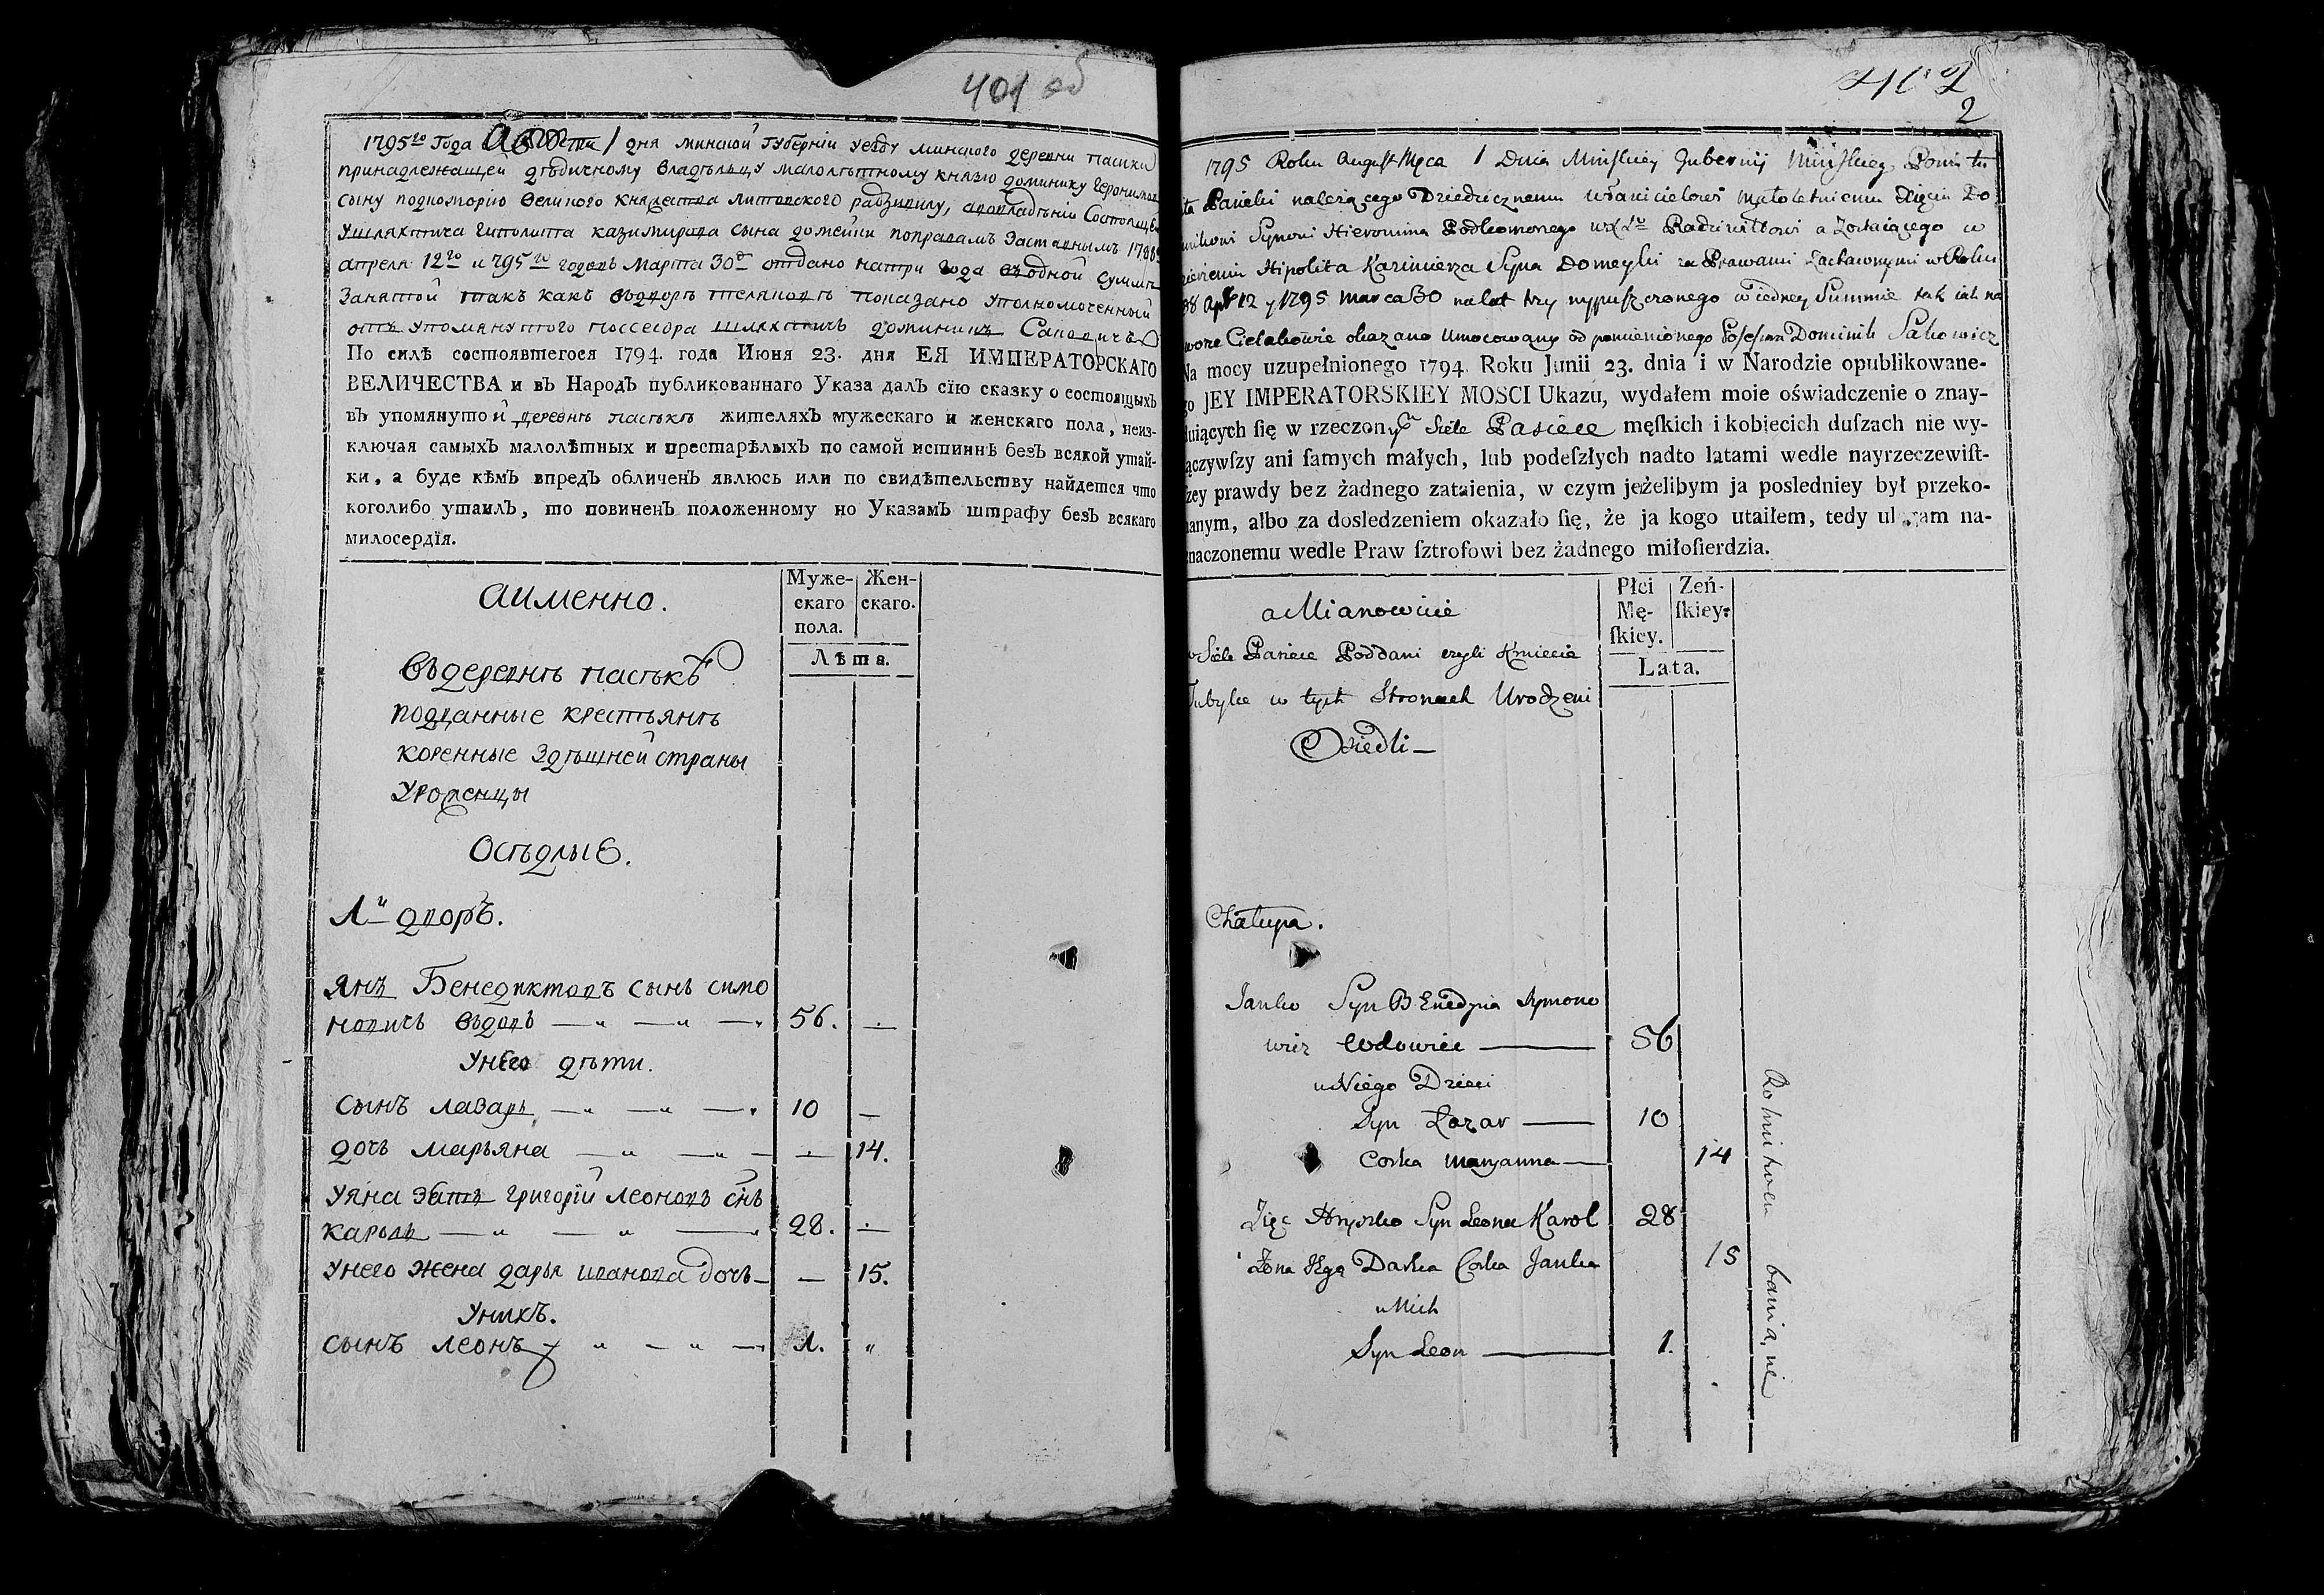 401 об
1795го Года Августа 1 дня минской Губерніи уезду минского деревни пасики
принадлежащей дѣдичному владѣльцу малолѣтному князю доминику Геронимов
сыну подкоморію великого княжества литовского радзивилу, авовладѣніи Состоящей
Ушляхтича Гиполита казимирова сына домейки поправамъ Заставнымъ 1788
апреля 12го и 795го годовъ Марта 30го отдано натри Года водной сумѣ
Занятой такъ какъ водворѣ показано уполномоченный
отъ упомянутого поссесора шляхтичъ доминикъ
По силѣ состоявшегося 1794. года Июня 23. дня ЕЯ ИМПЕРАТОРСКАГО
ВЕЛИЧЕСТВА и въ Народъ публикованнаго Указа далъ сїю сказку о состоящыхъ
въ упомянутой деревнѣ пасѣкѣ жителяхъ мужескаго и женскаго пола, неиз-
ключая самыхъ малолѣтныхъ и престарѣлыхъ по самой истиннѣ безъ всякой утай-
ки, а буде кѣмъ впредъ обличенъ явлюсь или по свидѣтельству найдется что
коголибо утаилъ, то повиненъ положенному но Указамъ штрафу безъ всякаго
милосердїя.
Аименно.
Муже-
скаго
пола.
Жен-
скаго.
Лѣта.
Въдеревнѣ пасѣкѣ
подданные крестьянѣ
коренные Здѣшней страны
Уроженцы
Осѣдлые.
1й дворъ.
Янъ Бенедиктовъ сынъ симо
новичъ вдовъ — „ — „ — 56. —
Унего дѣти.
сынъ лазарь — „ — „ — 10 —
дочь марьяна — „ — „ — — 14.
Уяна Зять григорїй леоновъ снъ
кароль — „ — „ — 28. —
Унего жена дарья иванова дочь — — 15.
Унихъ.
сынъ леонъ „ — „ — 1. „
402
2
1795 Roku August Mca 1 Dnia Minskiey Gubernij Minskieg Powiatu
Pasieki należącego Dziedzicznemu właścicielowi małoletniemu Xięciu Do
minikowi Synowi Hieronima Podkomorzego Radziwiłłowi a Zostaiącego w
Hipolita Kazimierza Syna Domeyki za Prawami Zastawnymi w Roku
88 Apr 12 y 1795 Marca 30 na lat try wypuszczonego w iedney Summie tak iak na
okazano Umocowany od pomienionego Dominik Sakowicz
Na mocy uzupełnionego 1794. Roku Junii 23. dnia i w Narodzie opublikowane-
go JEY IMPERATORSKIEY MOSCI Ukazu, wydałem moie oświadczenie o znay-
duiących ſię w rzeczonym Siele Pasiece męſkich i kobiecich duſzach nie wy-
ączywſzy ani ſamych małych, lub podeſzłych nadto latami wedle nayrzeczewiſt-
ſzey prawdy bez żadnego zataienia, w czym jeżelibym ja posledniey był przeko-
nanym, albo za dosledzeniem okazało ſię, że ja kogo utaiłem, tedy ulegam na-
znaczonemu wedle Praw ſztrofowi bez żadnego miłoſierdzia.
a Mianowicie
Płci
Mę-
ſkiey.
Zeń-
ſkiey.
Lata.
w Siele Pasiece Poddani czyli Kmiecie
Tubylce w tych Stronach Urodzeni
Osiedli —
Chałupa.
Janko Syn Benedyka Symono
wicz Wdowiec — 56
u Niego Dzieci
Syn Łazar — 10
Corka Maryanna — 14
Zięć Hryszko Syn Leona Karol 28
Żona Jego Darka Corka Janka 15
u Nich
Syn Leon — 1.